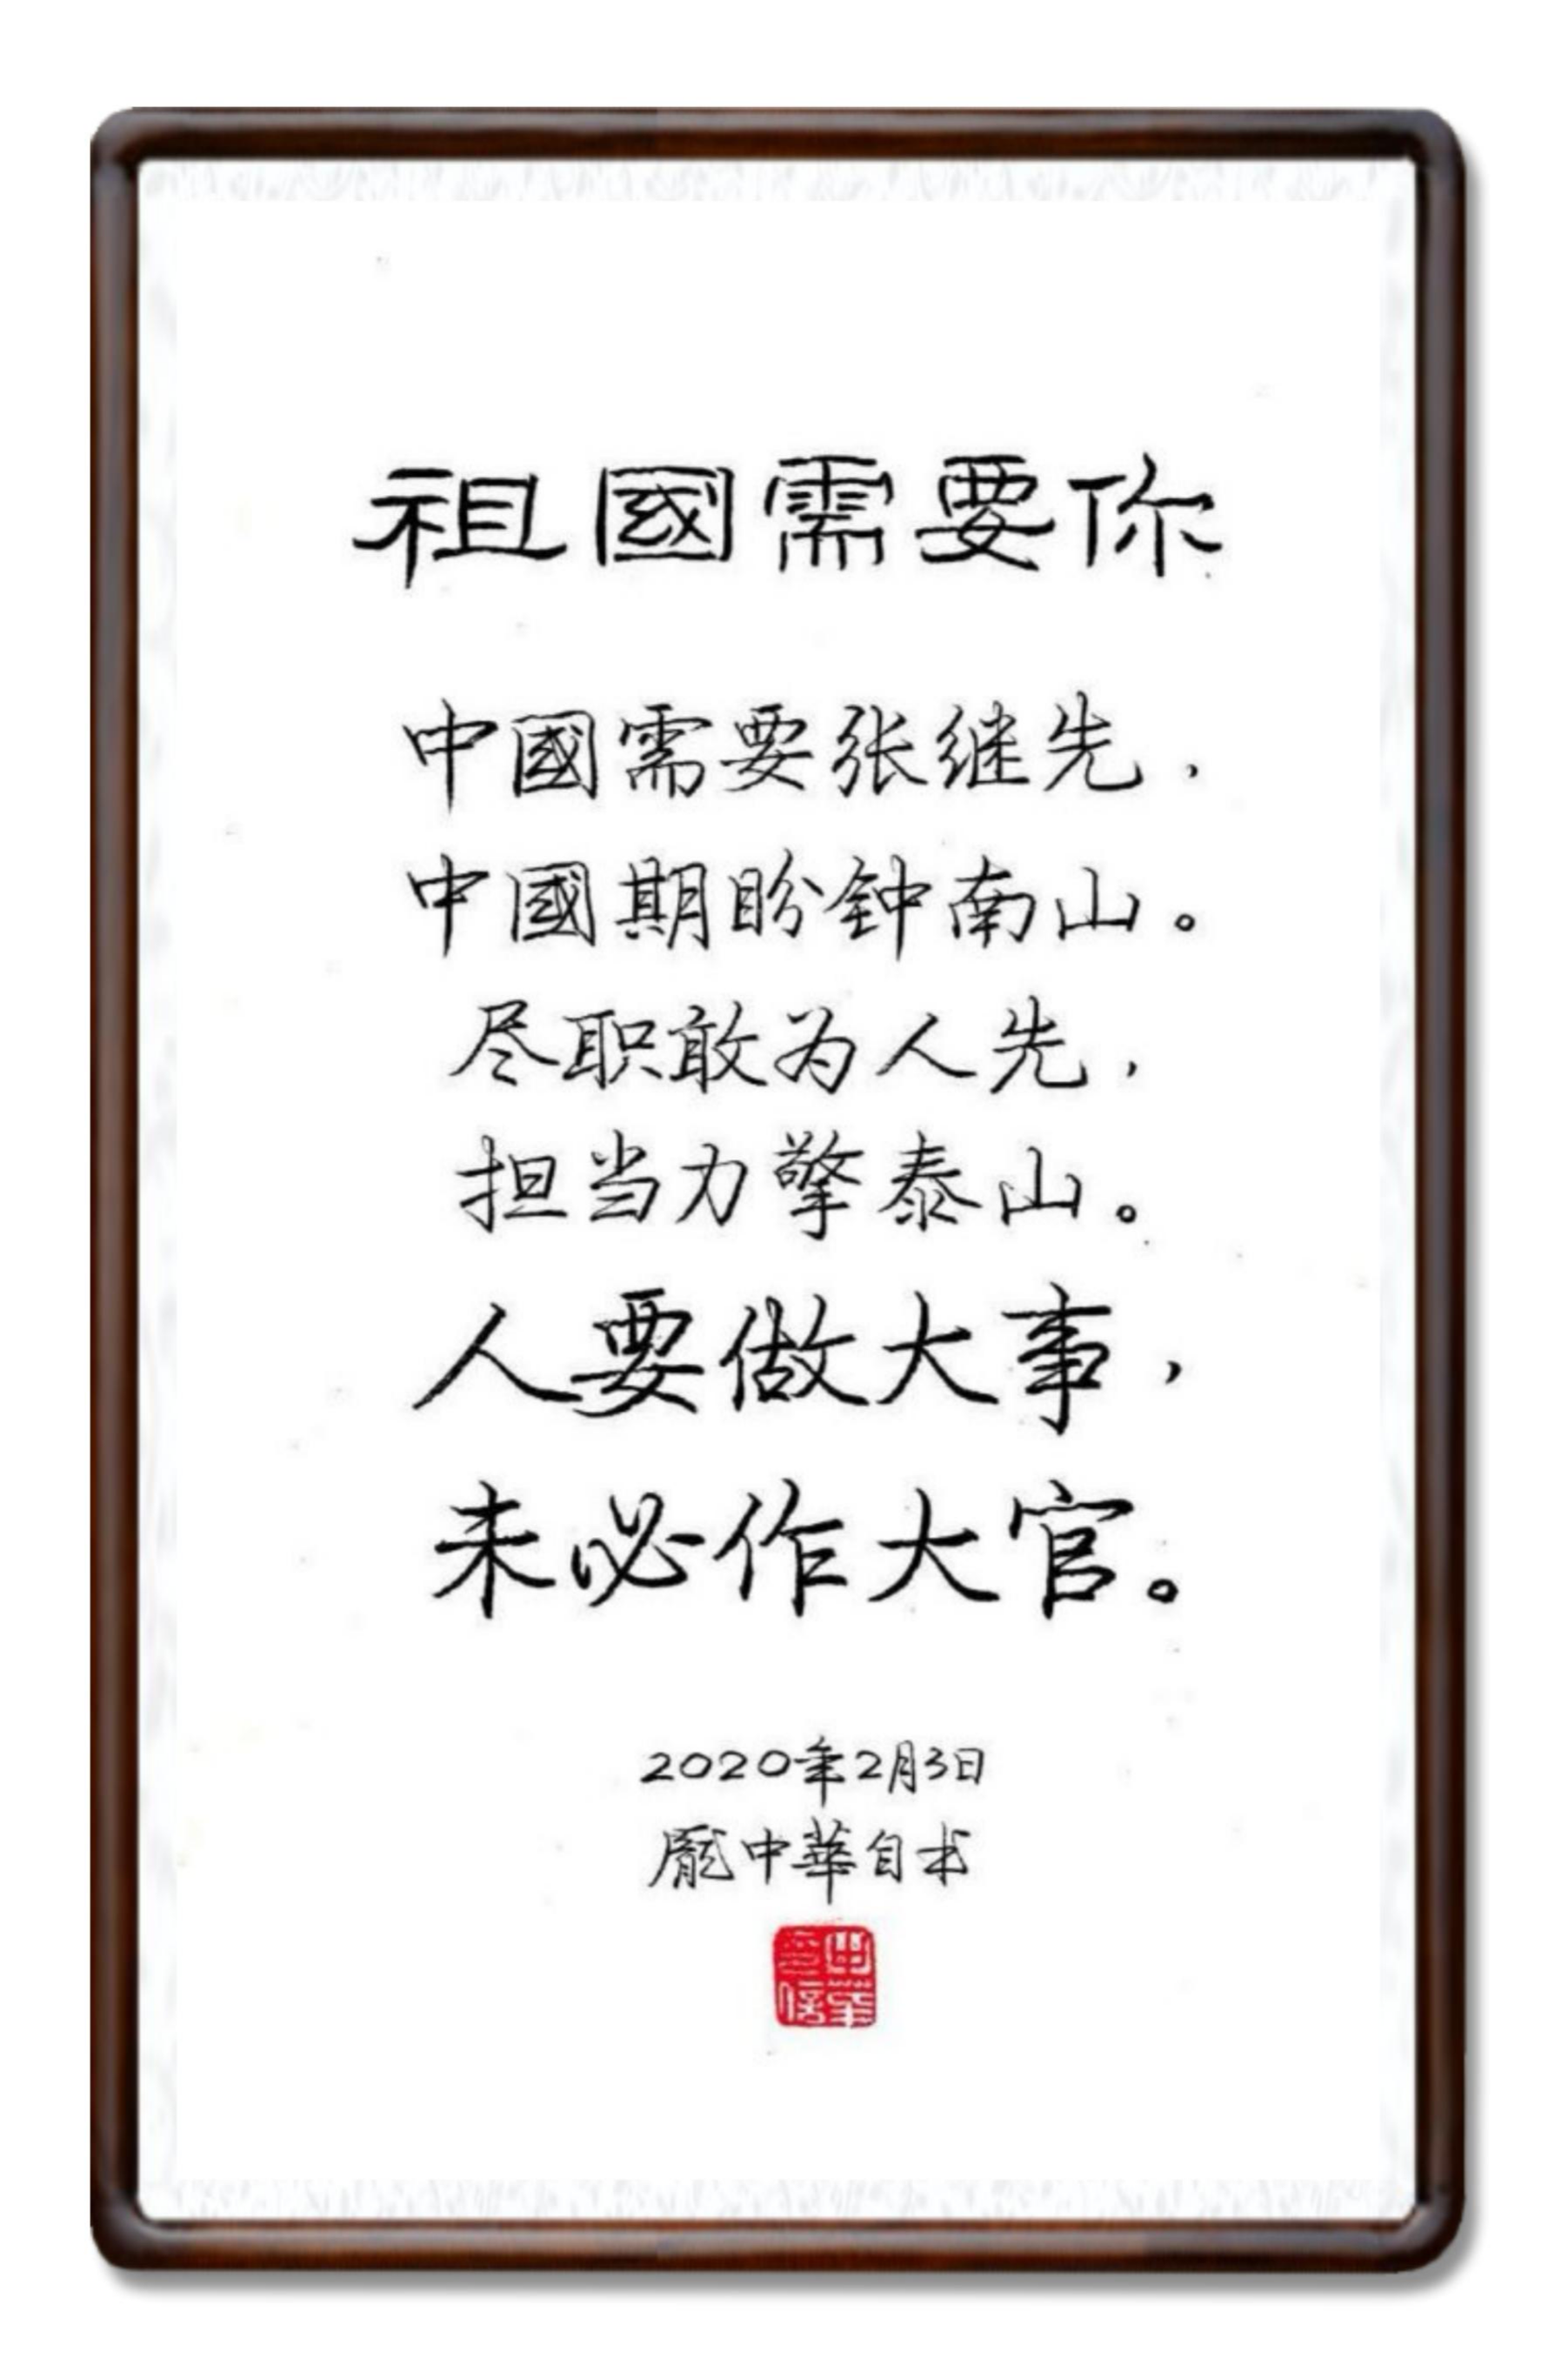 祖國需要你
中國需要张继先，
中國期盼钟南山。
尽职敢为人先，
担当力擎泰山。
人要做大事，
未必作大官。
2020年2月3日
龐中華自书
中华
印信